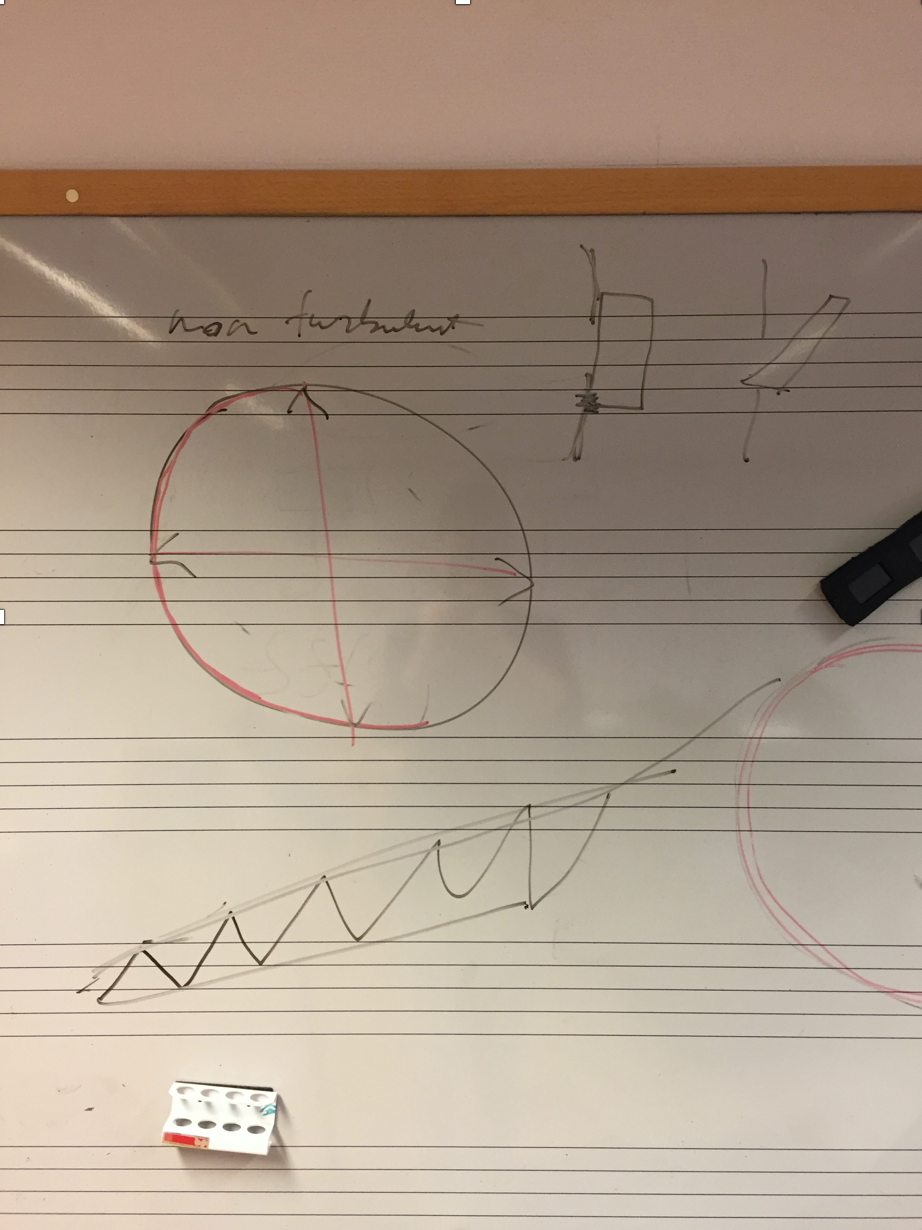 non turbulent